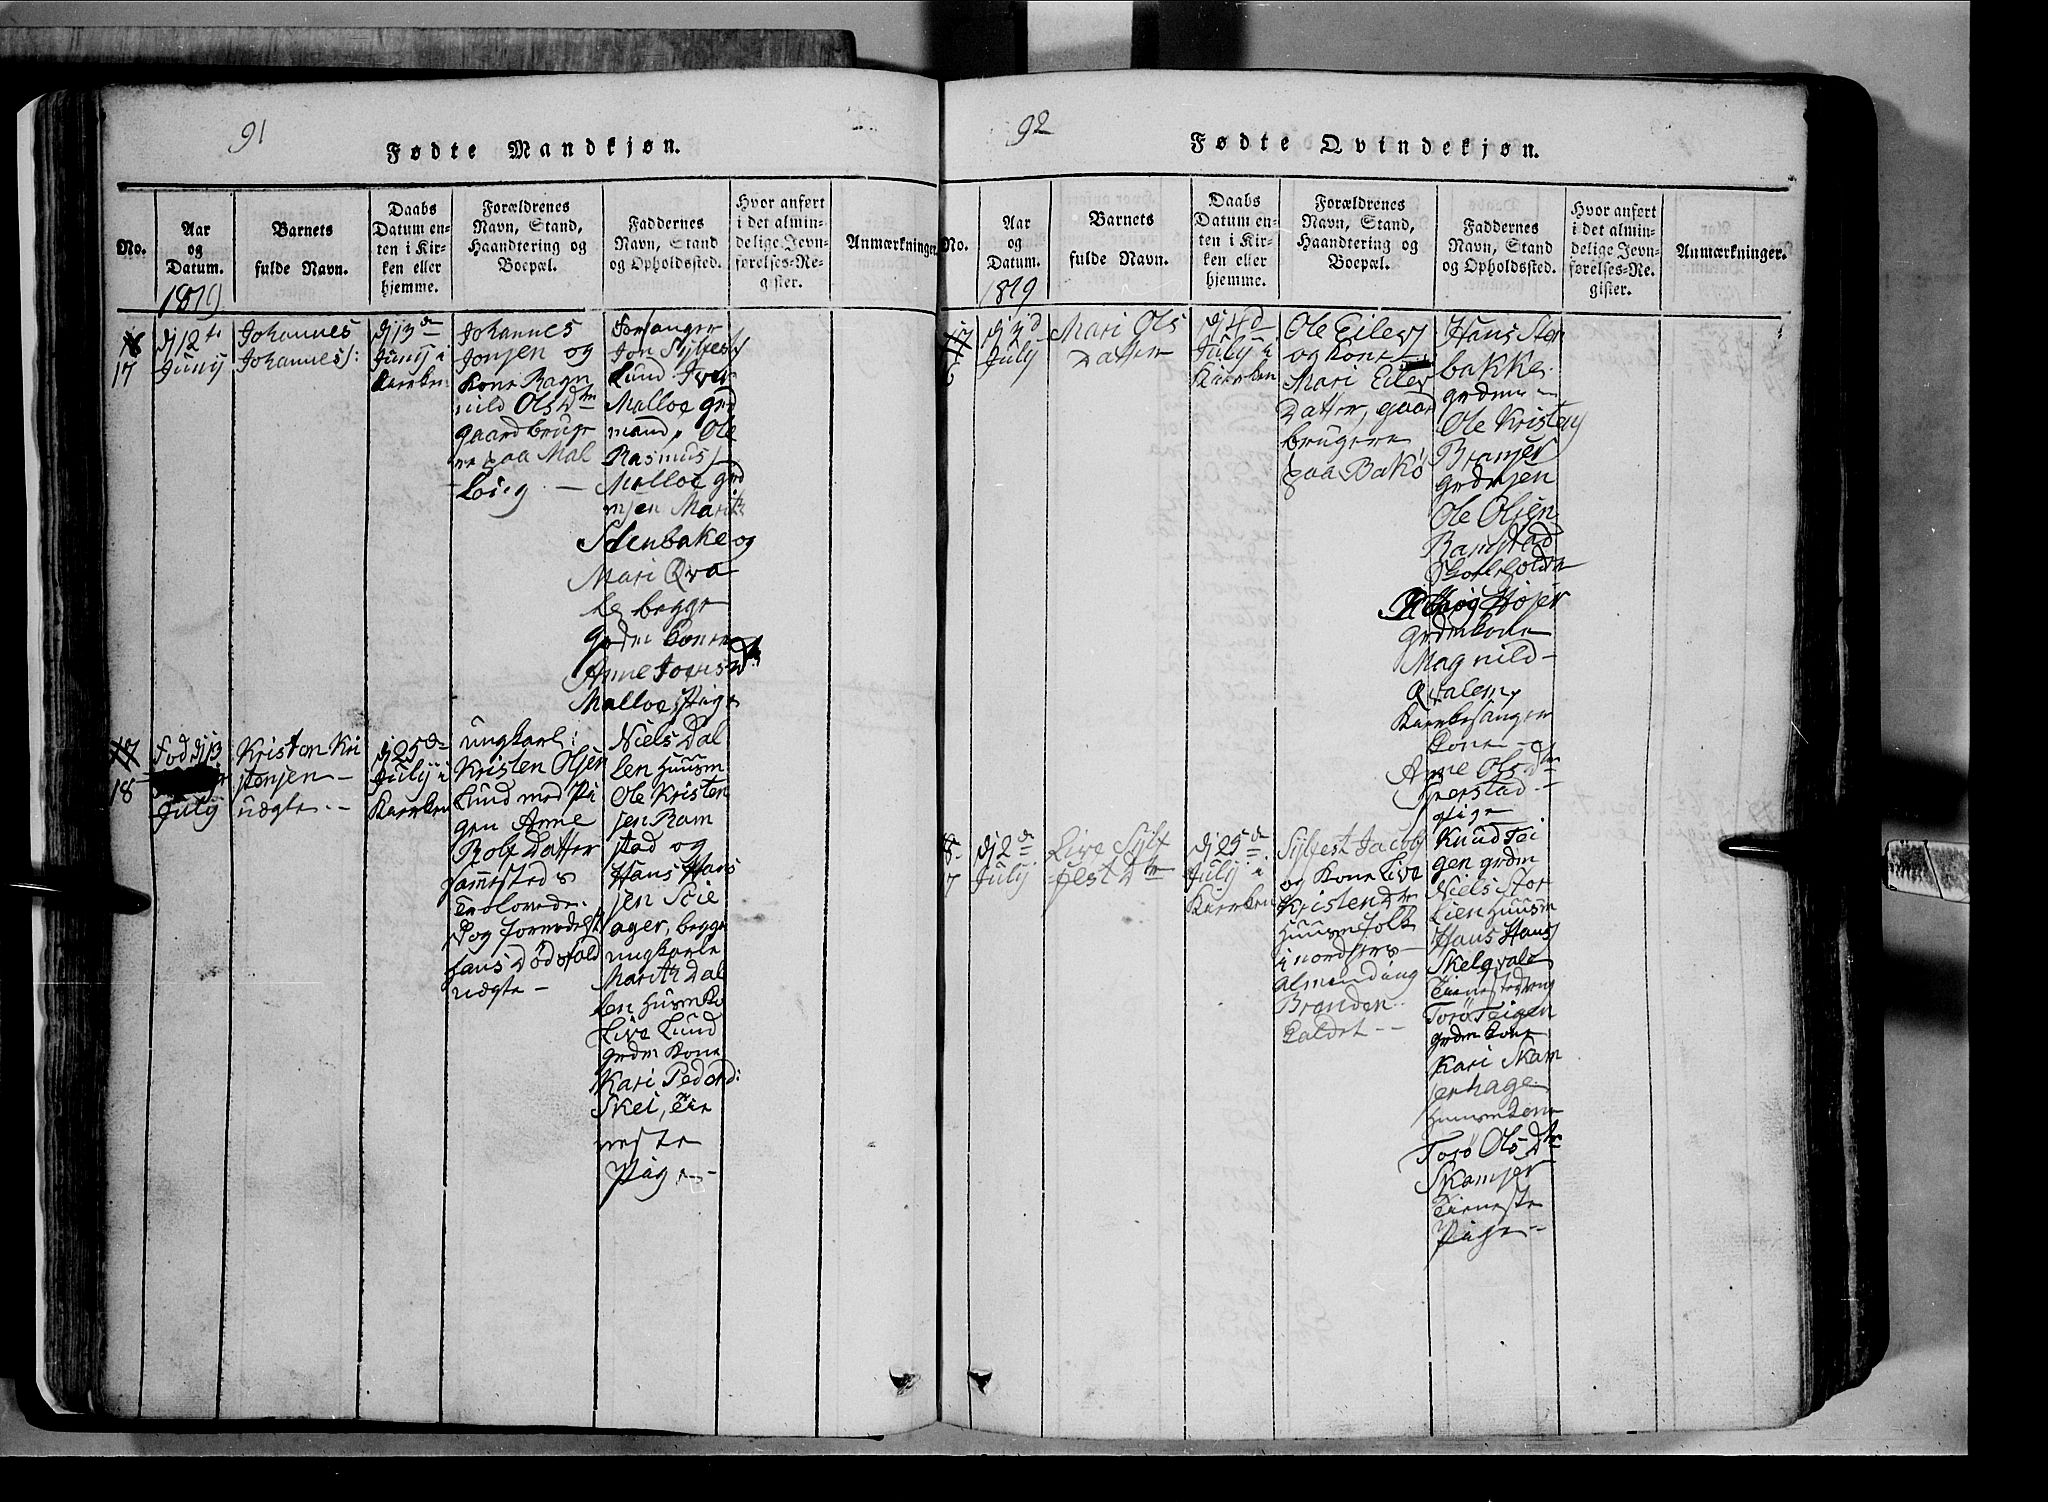 91
Fødte Mandkjøn.
No.
Aar
og
Datum.
1819
Barnets
fulde Navn.
Daabs
Datum en-
ten i Kir-
ken eller
hjemme.
Forældrenes
Navn, Stand,
Haandtering og
Boepæl.
Faddernes
Navn, Stand
og Opholdssted.
Hvor anført
i det almin-
delige Jevn-
førelses-Re-
gister.
Anmærkninger.
17
dj 12te
Junij
Johannes
Johannes/:
dj 13de
Junij i
Kierken
Johannes
Jonsen og
Kone Ragn
nild Olsdtr
gaardbruge
re paa Mal
Forsanger
Jon Sylfest/
Lund. Iver
Malloe grd
mand, Ole
Rasmus/
Malloe grd
Marith
Stenbake og
Mari Qva
le begge
grdm Koner
Anne
Malloe, Pige
18
Fød dj 13
July
Kristen Kri
stensen –
uægte. –
dj 25de
July i
Kierken
ungkarl:
Kristen Olsen
Lund med Pi
gen Anne
Rolf Datter
sammesteds
Trolovede.
Dog formedelst
hans Dødsfald
uægte –
Niels Dal
len Huusm
Ole Kristen
sen Ram
stad og
Hans Hans
sen Scie
ager, begge
ungkarle
Marith Dal
len Husm Ko
Live Lund
grdm Kone
Kari Peders:
Skei, Tie
neste
Pige –
92
Fødte Qvindekjøn.
No.
Aar
og
Datum.
1819
Barnets
fulde Navn.
Daabs
Datum en-
ten i Kir-
ken eller
hjemme.
Forældrenes
Navn, Stand,
Haandtering og
Boepæl.
Faddernes
Navn, Stand
og Opholdssted.
Hvor anført
i det almin-
delige Jevn-
førelses-Re-
gister.
Anmærkninger.
July
Mari Ols
Datter
dj 4de
July i
Kierken
Ole Eilevs/
og Kone
Mari Eilev
Datter, gaard
brugere
paa Bakø
Hans Sten
bakke
grdm –
Ole Kristens/
grdm
Ole Olsen
Ramstad
Højer
grdm Kone
Magnild –
Qvalem,
Kierkesanger
Kone –
Anne Olsdtr
Sverstad –
Pige
7
dj 2de
July
Live Sylf
fest Dtr
dj 25de
July i
Kierken
Sylfest Jacobs/
og Kone Live
Kristen Dtr
Huusmfolk
i nordherres
almending
Branden
Kaldet –
Knud Tei
gen grdm
Niels Stor
lien Huusm
Hans Hans/
Skelqvale
Tienestedreng
Torø Teigen
grdm Kone
Kari Skam
serhage
Huusm Kone
Torø Ols Dtr
Skamser
Tieneste
Pige –